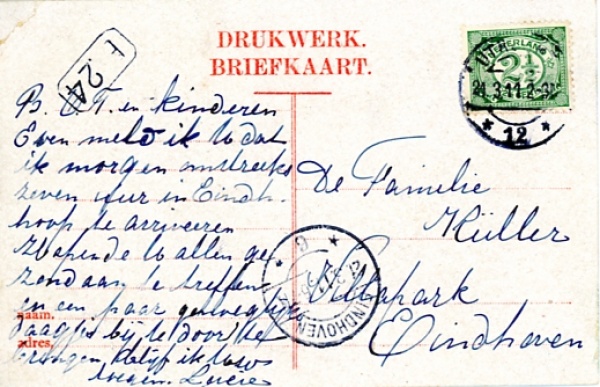 DRUKWERK.
BRIEFKAART.
24
NEDERLAND
2½
21.3.11.2-3
12
B. & T. en kinderen
Even meld ik U dat
ik morgen omstreeks
zeven uur in Eindh.
hoop te arriveeren
Hopende U allen ge
zond aan te treffen
en een paar genoegelijke
naam.
daagjes bij U door te
adres.
brengen blijf ik
Lucie
De Familie
Müller
Villapark
Eindhoven
EINDHOVEN